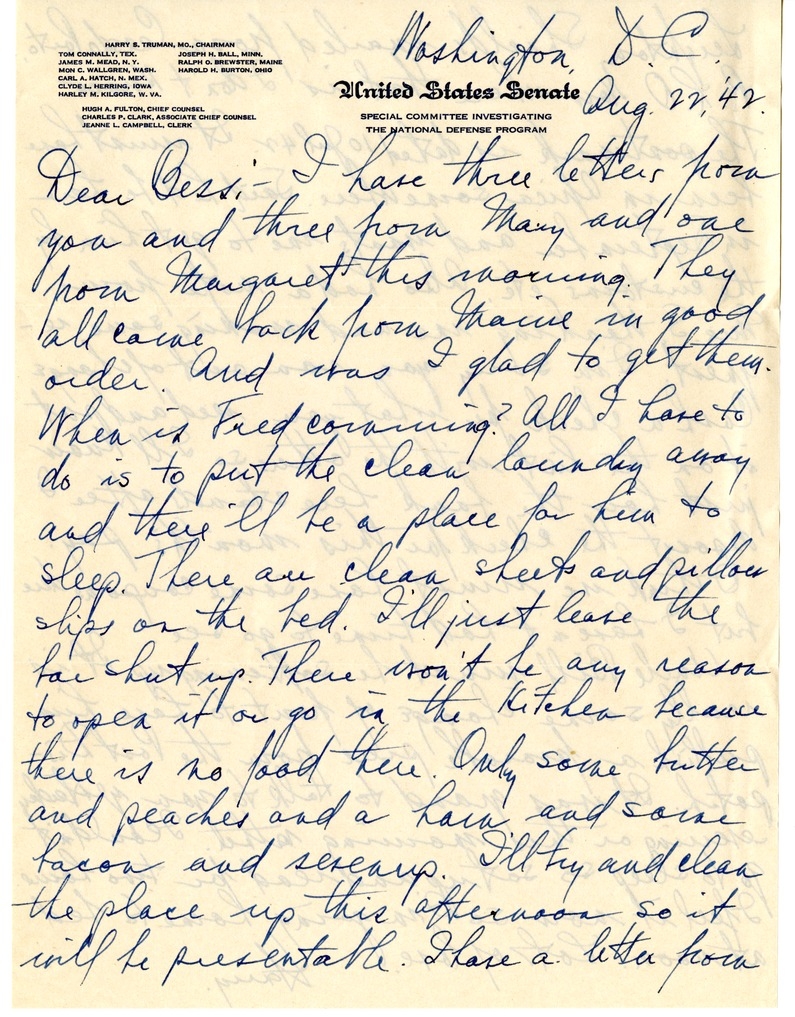 HARRY S. TRUMAN, MO., CHAIRMAN
TOM CONNALLY, TEX. JOSEPH H. BALL, MINN.
JAMES M. MEAD, N. Y. RALPH O. BREWSTER, MAINE
MON C. WALLGREN, WASH. HAROLD H. BURTON, OHIO
CARL A. HATCH, N. MEX.
CLYDE L. HERRING, IOWA
HARLEY M. KILGORE, W. VA.
HUGH A. FULTON, CHIEF COUNSEL
CHARLES P. CLARK, ASSOCIATE CHIEF COUNSEL
JEANNE L. CAMPBELL, CLERK
United States Senate
SPECIAL COMMITTEE INVESTIGATING
THE NATIONAL DEFENSE PROGRAM
Washington, D.C.
Aug. 22, '42.
Dear Bess:- I have three letters from
you and three from Mary and one
from Margaret this morning. They
all came back from Maine in good
order. And was I glad to get them.
When is Fred comming? All I have to
do is to put the clean laundry away
and there'll be a place for him to
sleep. There are clean sheets and pillow
slips on the bed. I'll just leave the
bar shut up. There won't be any reason
to open it or go in the Kitchen because
there is no food there. Only some butter
and peaches and a ham and some
bacon and sevenup. I'll try and clean
the place up this afternoon so it
will be presentable. I have a letter from